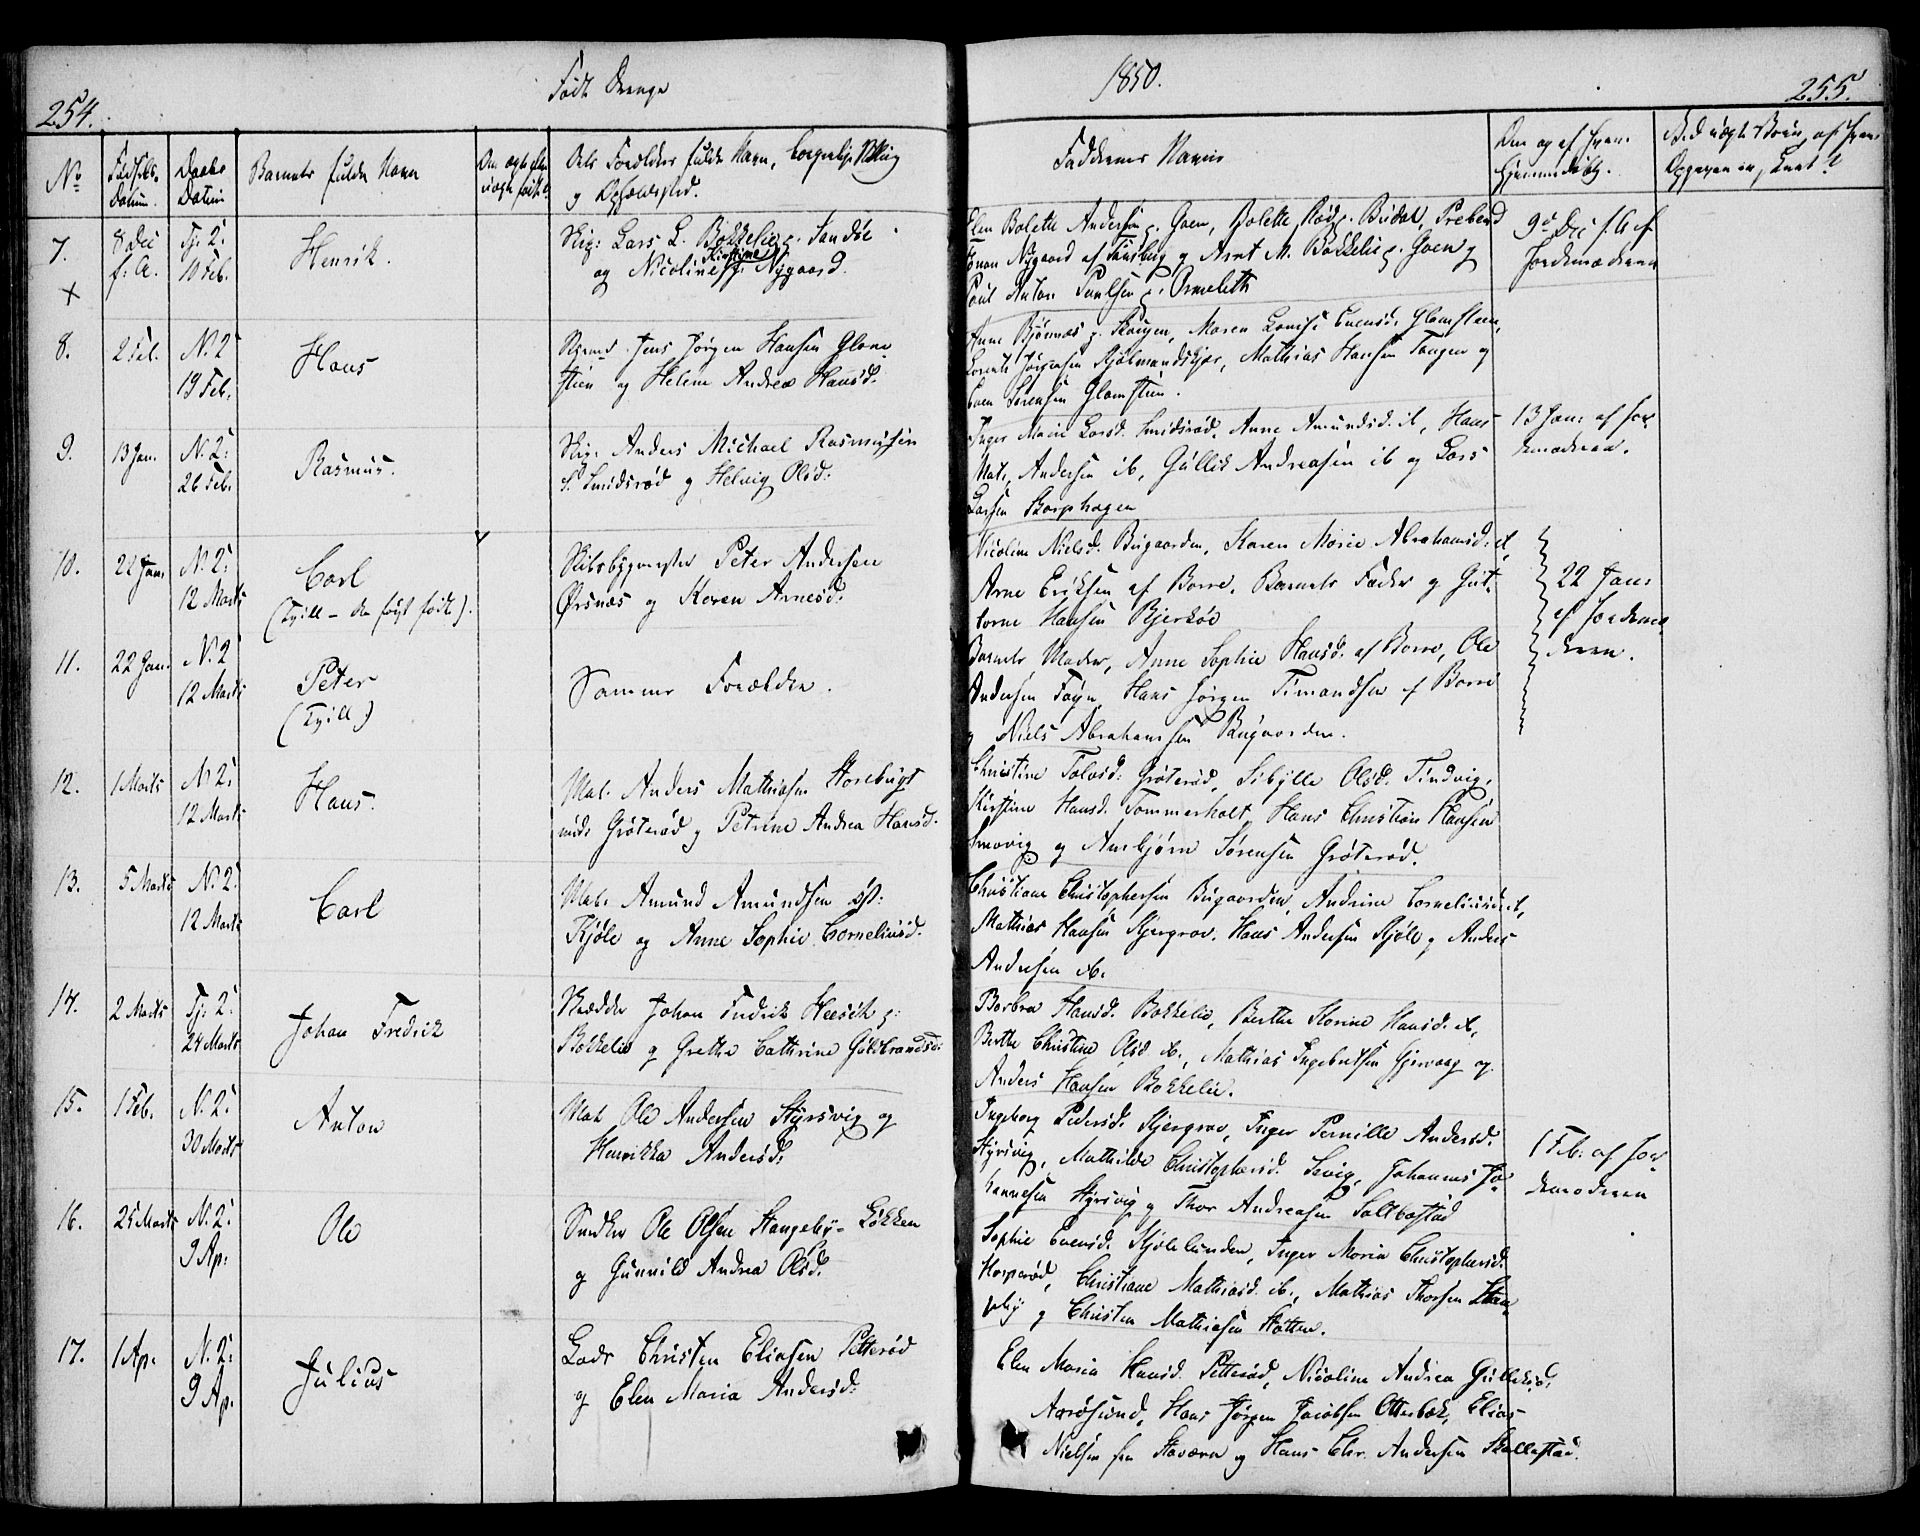 254.
Födt Drenge
1850.
255.
No
Födsels Datum.
Daabs Datum
Barnets fulde Navn
Om ægte eller uægte födt?
Dets Forældres fulde Navn, borgerlige Stilling
og Opholdssted.
Faddernes Navne
Om og af hvem
hjemmedöbt.
Ved uægte Börn, af hvem
Opgaven er skeet?
7.
8 Dec f. A.
Tj: 2: 10 Feb.
Henrik.
Skip: Lars L. Bokkelie p. Sandöe
og Nicoline Kirstine f. Nygaard.
Elen Bolette Andersen p. Goen, Bolette Röd p. Budal, Prebend
Nygaard af Tönsberg og Arnt M. Bokkelie p. Goen og
Poul Anton Paulsen p. Ormelett
9de Dec f. A. af
Jordemoderen
8.
2 Feb.
N. 2: 19 Feb.
Hans
Jens Jörgen Hansen Glom-
stien og Helene Andrea Hansd:
Anne Bjönnes p. Skougen, Maren Lovise Evensd. Glomstien,
Jörgensen Kjölmandskjær, Mathias Hansen Tangen og
Even Sörensen Glomstien.
9.
13 Jan.
N. 2: 26 Feb.
Rasmus.
Skip: Anders Michael Rasmussen
S. Smidsröd og Helvig Olsd:
Inger Marie Larsd. Smidsröd, Anne Amundsd. ib, Hans
Mat. Andersen ib, Gullik Andreasen ib og Lars
Larsen Torphagen
13 Jan: af Jor-
demoderen.
10.
22 Jan:
N. 2: 12 Marts
Carl
(Tvill – den förstfödte).
Skibsbygmester Peter Andersen
Örsnæs og Karen Arnesd:
Nicoline Nielsd. Bugaarden, Karen Marie Abrahamsd: ib,
Arne Eriksen af Borre, Barnets Fader og Gut-
torm Hansen Bjerköe
22 Jan:
af Jordemo-
deren.
11.
22 Jan.
N. 2: 12 Marts
Peter
(Tvill.)
Samme Forældre.
Barnets Moder, Anne Sophie Hansd. af Borre, Ole
Andersen Föyn, Hans Jörgen Simandsen af Borre
og Niels Abrahamsen Bugaarden.
12.
1 Marts
N. 2: 12 Marts
Hans.
Mat. Anders Mathiasen Storebugt
Gröteröd og Petrine Andrea Hansd.
Christine Tolvsd: Gröteröd, Sibylle Olsd. Tindvig,
Kirstine Hansd. Sommerholt, Hans Christian Hansen
og Ansbjörn Sörensen Gröteröd.
13.
5 Marts
N. 2: 12 Marts
Carl
Mat. Amund Amundsen
Kjöle og Anne Sophie Corneliusd.
Christiane Christophersen Bugaarden, Andrine Corneliusd. ib,
Mathias Hansen Kjergrav, Hans Andersen Kjöle og Anders
Andersen ib.
14.
2 Marts
Tj: 2: 24 Marts
Johan Fredrik
Skrædder Johan Fredrik Heesch p:
Bokkelie og Grethe Cathrine Guldbrandsd:
Barbra Hansd. Bokkelie, Berthe Karine Hansd. ib,
Berthe Christine Olsd ib, Mathias Ingebretsen Hjervaag og
Anders Hansen Bokkelie.
15.
1 Feb.
N. 2: 30 Marts
Anton
Mat Ole Andersen Styrsvig og
Henrikka Andersd:
Ingeborg Pedersd. Kjergrav, Inger Pernille Andersd.
Styrsvig, Mathilde Christophersd. Sevig, Johannes Jo-
hannesen Styrsvig og Thor Andreasen Solbostad
1 Feb: af Jor-
demoderen
16.
25 Marts
N. 2: 9 Ap:
Ole
Snedker Ole Olsen Stangeby-Lökken
og Gunnild Andrea Olsd.
Sophie Evensd. Kjölelunden, Inger Maria Christophersd.
Horperöd, Christiane Mathiasd. ib., Mathias Thorsen Stan-
geby og Christen Mathiasen Hotten.
17.
1 Ap.
N. 2: 9 Ap.
Julius
Lods Christen Eliasen Petteröd
og Elen Maria Andersd:
Elen Maria Hansd. Petteröd, Nicoline Andrea Gulliksd.
Aarösund, Hans Jörgen Jacobsen Otterbek, Elias
Nielsen fra Stavern og Hans Chr. Andersen Skallestad.